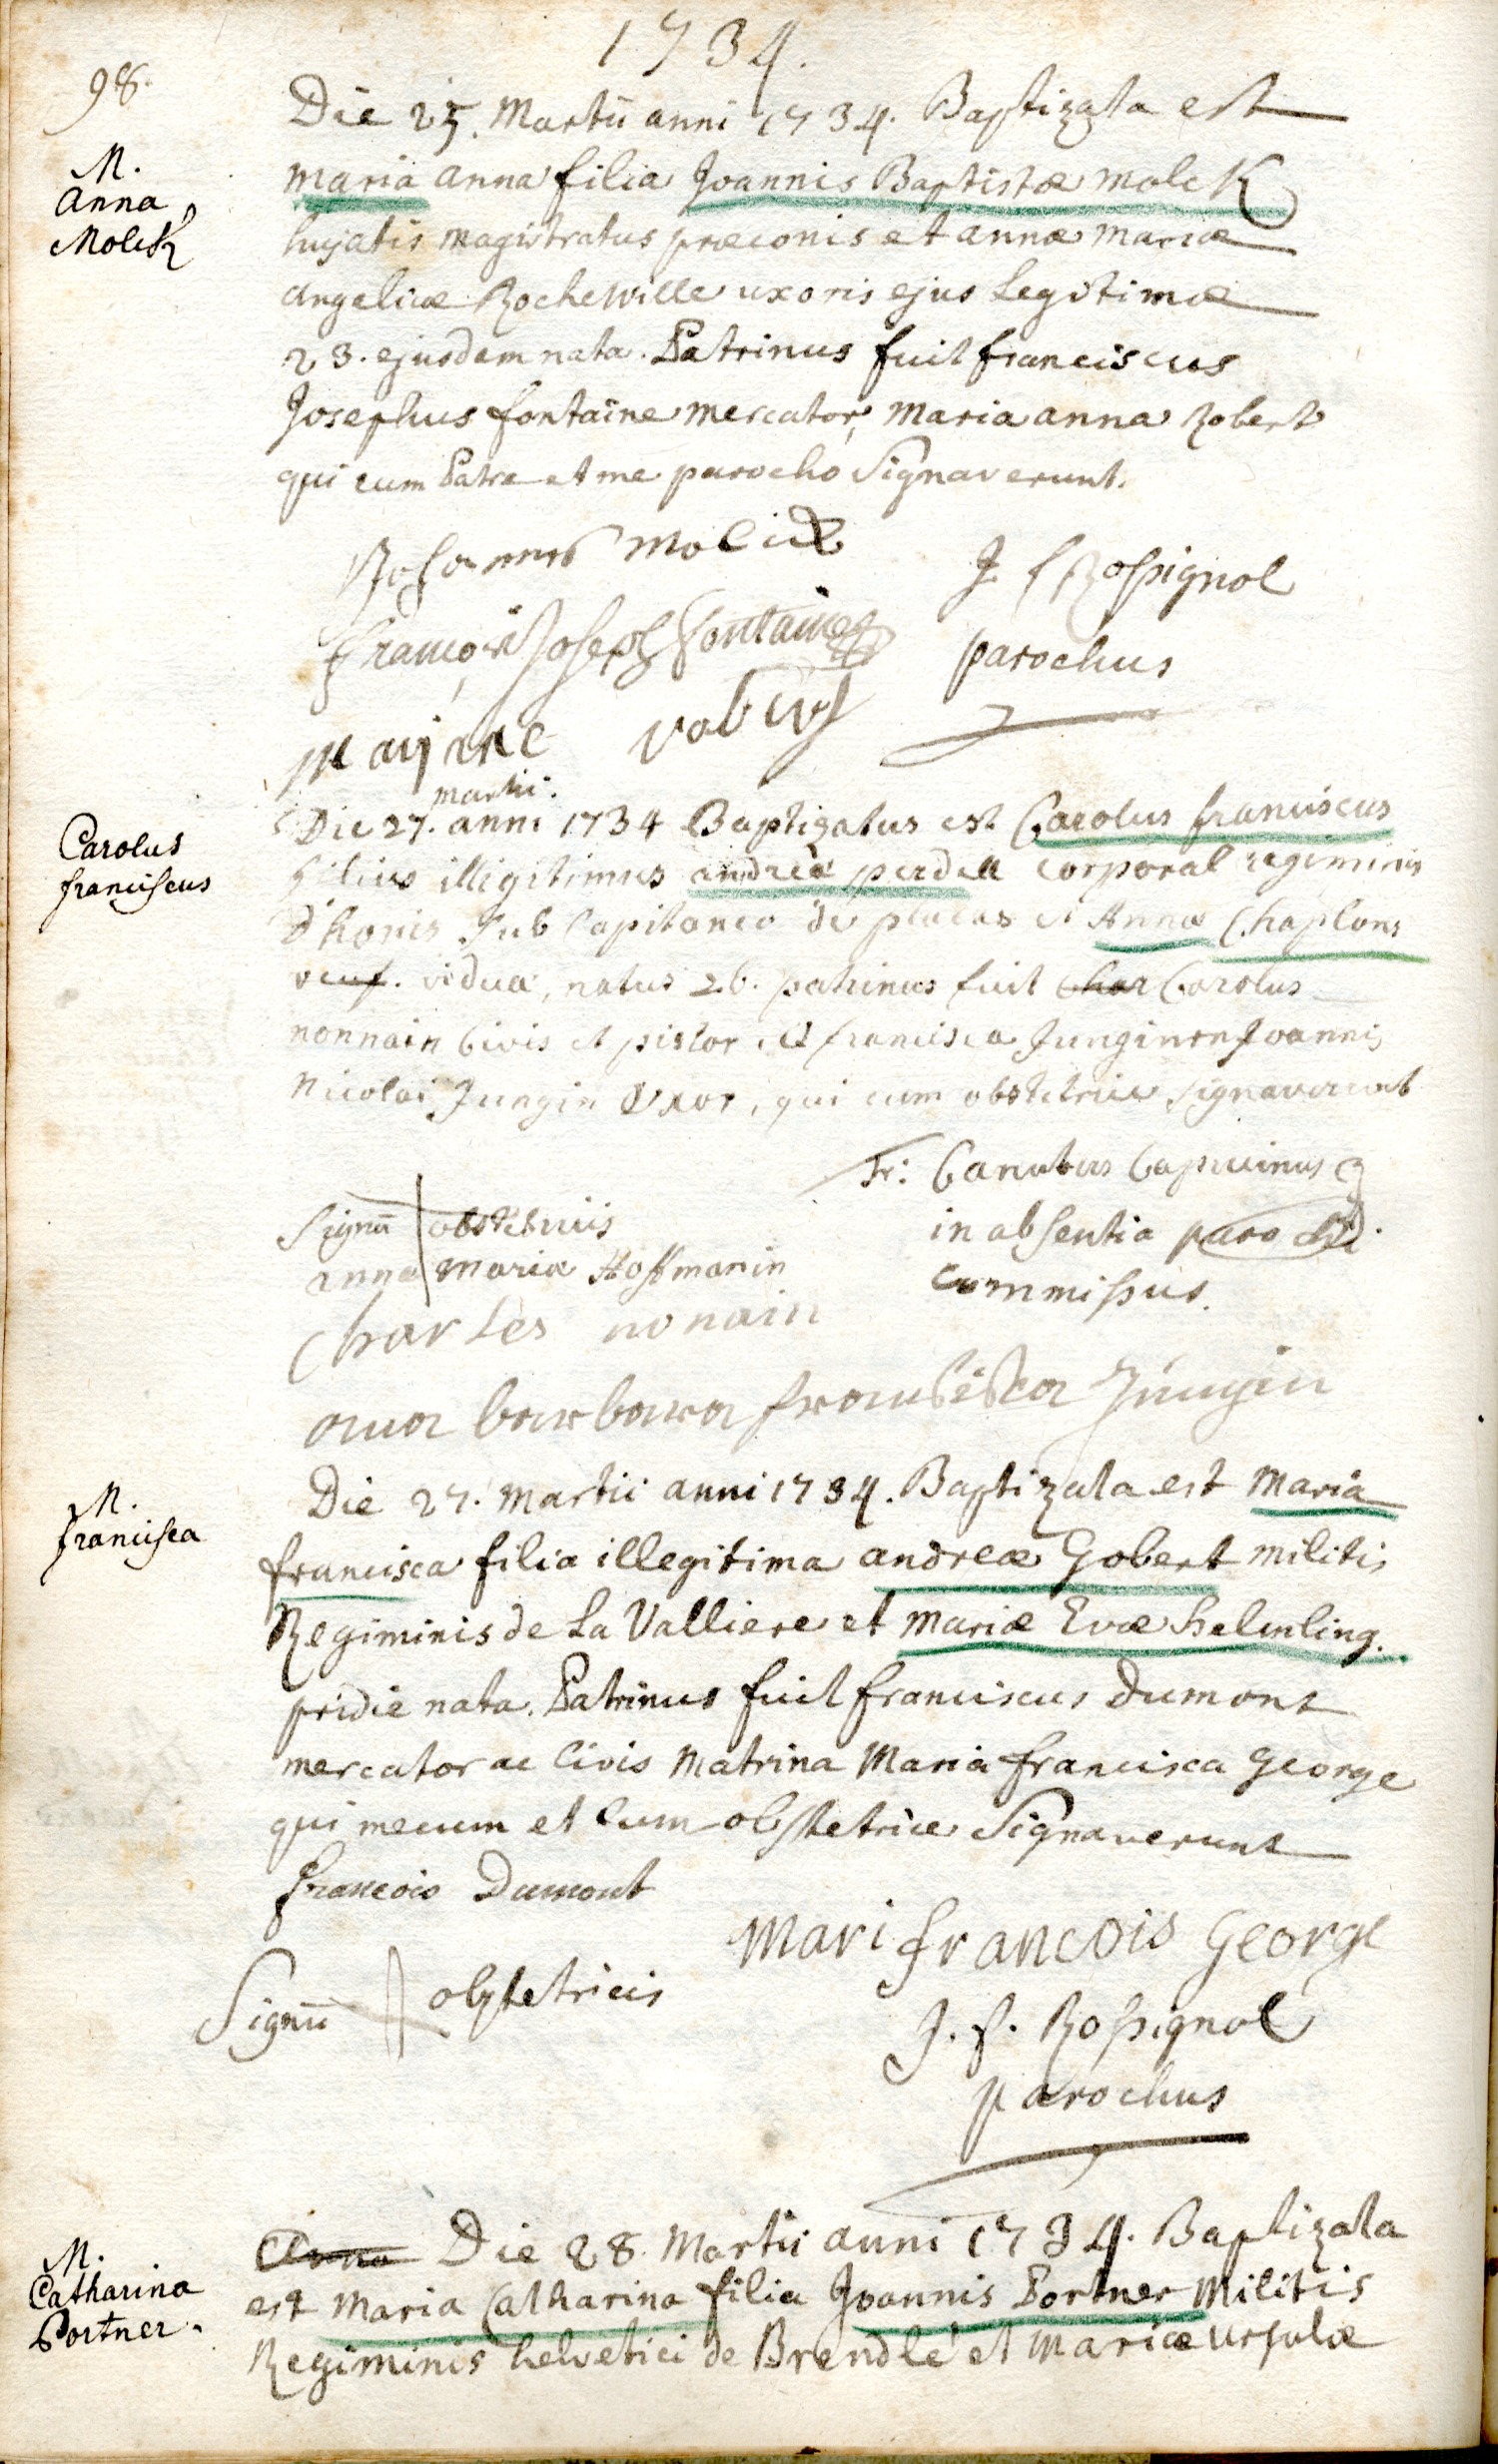 1734.
98.
Die 25. Martii anni 1734. Baptizata est
M.
Anna
Molck
maria anna filia Joannis Baptistæ Molck
hujatis magistratus præconis et annæ mariæ
angelicæ Rochewille uxoris ejus Legitimæ
23. ejusdem nata. Patrinus fuit franciscus
Josephus fontaine mercator, maria anna Robert
qui cum Patre et me parocho Signaverunt.
Johannes
J. f Rossignol
françois Joseph fontaine
parochus
martii.
Die 27. anni 1734 Baptizatus est Carolus franciscus
Carolus
franciscus
filius illigitimus andreæ corporal regiminis
sub Capitaneo de et Annæ Chaplons
veuf. vidua, natus 26. patrinus fuit Char Carolus
nonnain Civis et pistor et francisca Joannis
Nicolai Jungin Uxor, qui cum obstetrice signaverunt
fr: Canutus Capucinus
Signu obstetricis
in absentia parochi
anna maria Hoffmanin
commissus.
Charles nonain
ana barbara Jungin
Die 27. Martii anni 1734. Baptizata est Maria
M.
francisca
francisca filia illegitima andreæ Gobert militis
Regiminis de La Valliere et mariæ Evæ helmling.
pridie nata. Patrinus fuit franciscus Dumont
mercator ac Civis Matrina Maria francisca George
qui mecum et cum obstetrice Signaverunt
francois Dumont
Mari francois George
Signū obstetricis
J. f. Rossignol
parochus
Anna Die 28. Martii anni 1734. Baptizata
M.
Catharina
Portner.
est Maria Catharina filia Joannis Portner Militis
Regiminis helvetici de Brendlé et Mariæ Ursulæ